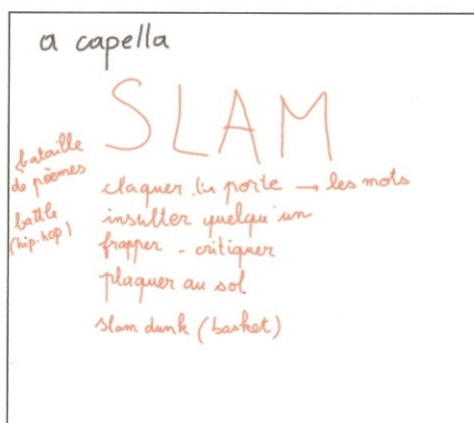 a capella
SLAM
bataille
de poèmes
battle
(hip-hop)
claquer la porte → les mots
insulter quelqu'un
frapper - critiquer
plaquer au sol
slam dunk (basket)